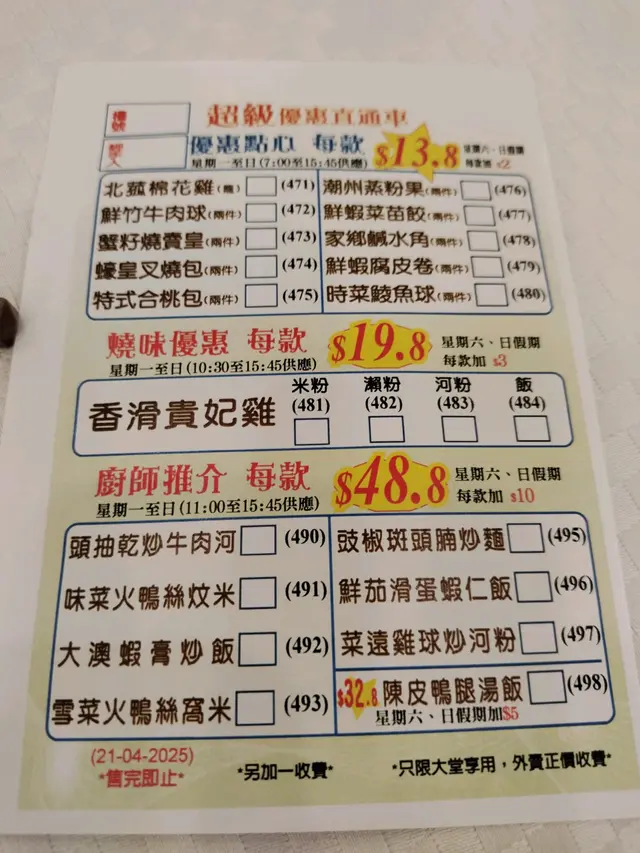 檯號
超級優惠直通車
經手人
優惠點心 每款 $13.8 星期六、日假期
星期一至日(7:00至15:45供應) 每款加 $2
北菰棉花雞(籠) (471) 潮州蒸粉果(兩件) (476)
鮮竹牛肉球(兩件) (472) 鮮蝦菜苗餃(兩件) (477)
蟹籽燒賣皇(兩件) (473) 家鄉鹹水角(兩件) (478)
蠔皇叉燒包(兩件) (474) 鮮蝦腐皮卷(兩件) (479)
特式合桃包(兩件) (475) 時菜鯪魚球(兩件) (480)
燒味優惠 每款 $19.8 星期六、日假期
星期一至日(10:30至15:45供應) 每款加 $3
米粉 瀨粉 河粉 飯
香滑貴妃雞 (481) (482) (483) (484)
廚師推介 每款 $48.8 星期六、日假期
星期一至日(11:00至15:45供應) 每款加 $10
頭抽乾炒牛肉河 (490) 豉椒斑頭腩炒麵 (495)
味菜火鴨絲炆米 (491) 鮮茄滑蛋蝦仁飯 (496)
大澳蝦膏炒飯 (492) 菜遠雞球炒河粉 (497)
雪菜火鴨絲窩米 (493) $32.8 陳皮鴨腿湯飯 (498)
星期六、日假期加$5
(21-04-2025)
*售完即止* *另加一收費* *只限大堂享用，外賣正價收費*